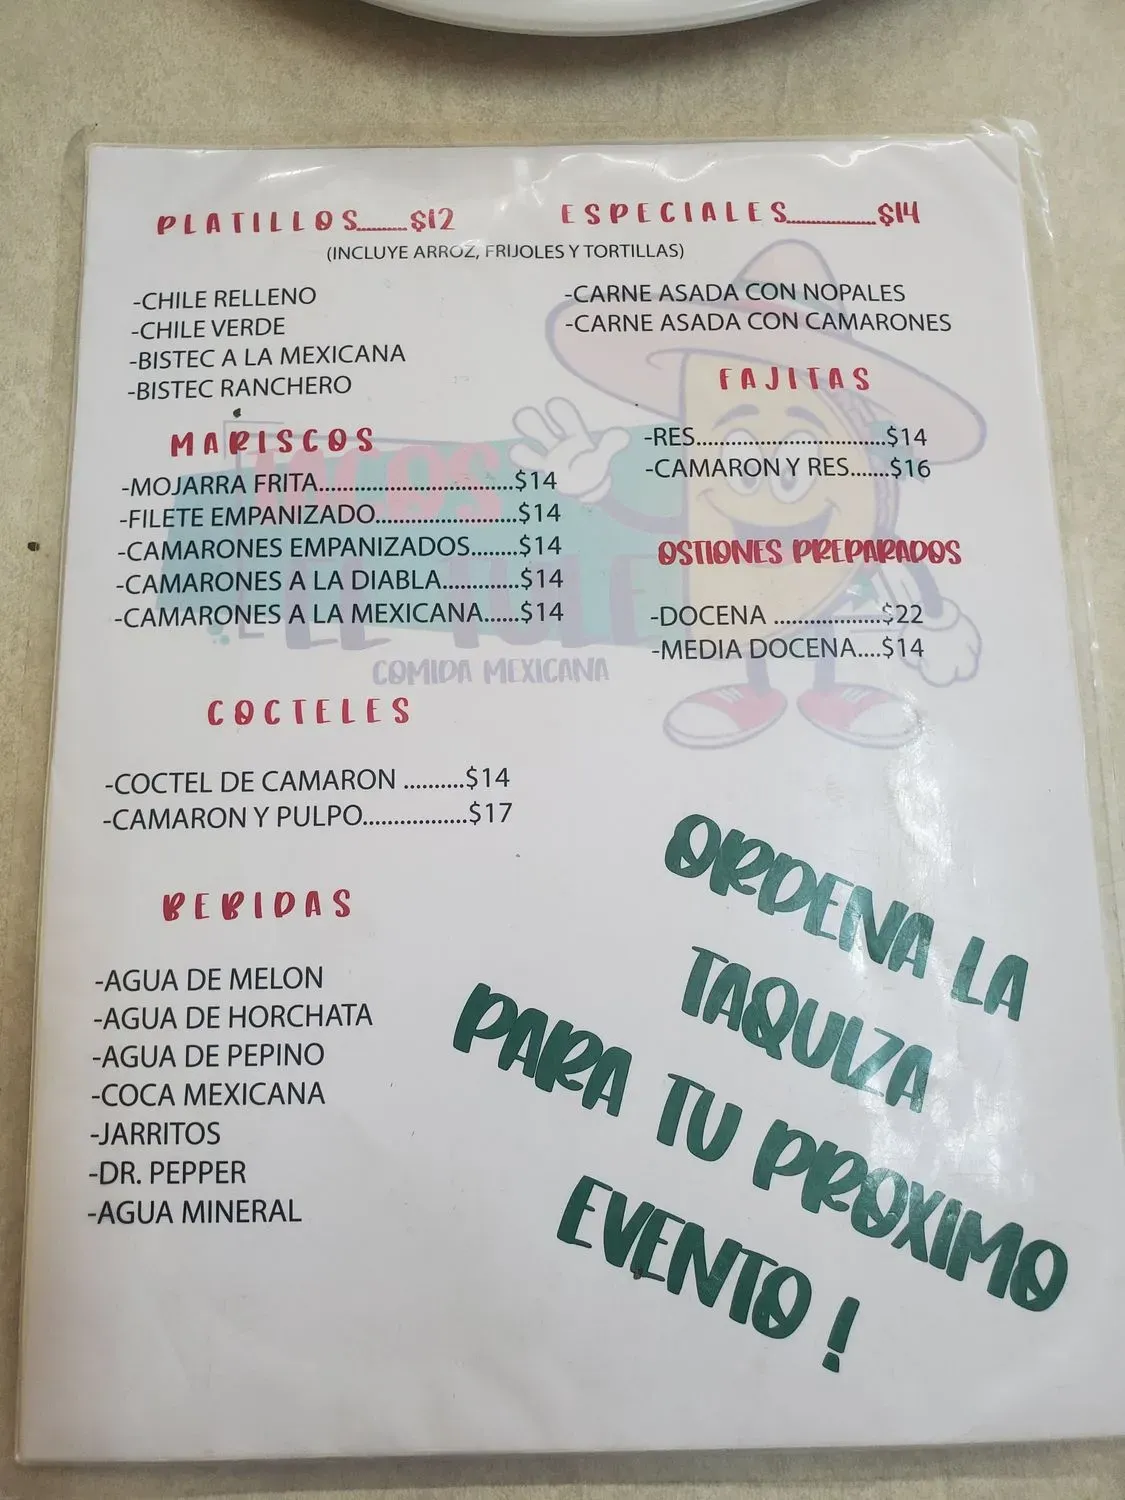 PLATILLOS.........$12
ESPECIALES.................$14
(INCLUYE ARROZ, FRIJOLES Y TORTILLAS)
-CHILE RELLENO
-CHILE VERDE
-BISTEC A LA MEXICANA
-BISTEC RANCHERO
-CARNE ASADA CON NOPALES
-CARNE ASADA CON CAMARONES
FAJITAS
-RES................................$14
-CAMARON Y RES.......$16
MARISCOS
-MOJARRA FRITA.................................$14
-FILETE EMPANIZADO........................$14
-CAMARONES EMPANIZADOS........$14
-CAMARONES A LA DIABLA.............$14
-CAMARONES A LA MEXICANA......$14
TACOS
EL TULE
COMIDA MEXICANA
OSTIONES PREPARADOS
-DOCENA ...................$22
-MEDIA DOCENA....$14
COCTELES
-COCTEL DE CAMARON ..........$14
-CAMARON Y PULPO.................$17
BEBIDAS
-AGUA DE MELON
-AGUA DE HORCHATA
-AGUA DE PEPINO
-COCA MEXICANA
-JARRITOS
-DR. PEPPER
-AGUA MINERAL
ORDENA LA
TAQUIZA
PARA TU PROXIMO
EVENTO !